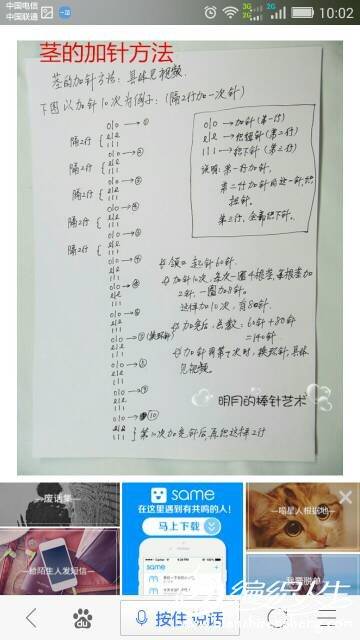 中国电信
中国联通
3G
2G
2G
10:02
茎的加针方法
茎的加针方法: 具体见视频.
下图以加针10次为例子: (隔2行加一次针)
0|0 → ①
隔2行
0|0 → ②
隔2行
0|0 → ③
隔2行
0|0 → ④
隔2行
0|0 → ⑤
隔2行
0|0 → ⑩
第10次加完针后,再织这样2行
0|0 → 加针 (第一行)
୧|୧ → 扭针 (第二行)
||| → 织下针 (第三行)
说明: 第一行加针,
第二行加针的这一针,织
扭针.
第三行, 全织下针.
领口起针60针.
加针10次, 每次一圈4根茎, 每根茎加
2针, 一圈加8针.
这样加10次, 有80针.
加完后, 总数: 60针+80针
=140针
见视频.
明月的棒针艺术
—废话集—
same
在这里遇到有共鸣的人!
马上下载
same
—喵星人根据地—
—给陌生人发短信—
我要脱单
编织人生
按住 说话